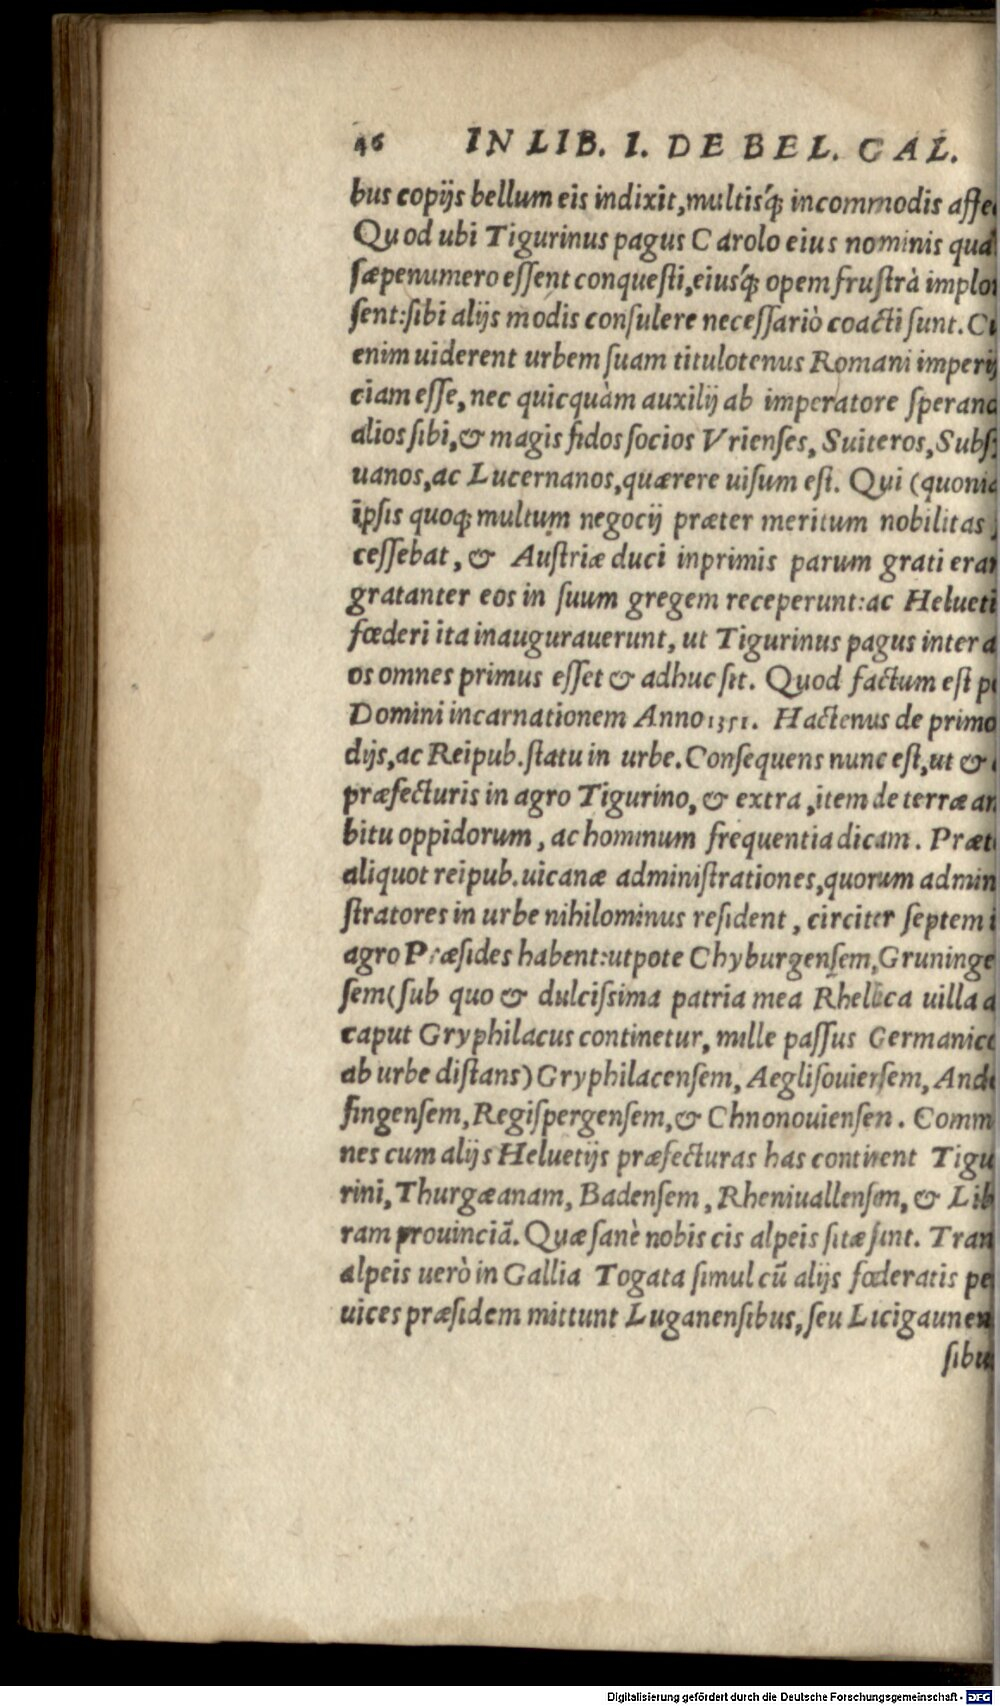 46 IN LIB. I. DE BEL. GAL.
bus copijs bellum eis indixit, multisq́; incommodis affe
Quod ubi Tigurinus pagus Carolo eius nominis qua
sæpenumero essent conquesti, eiusq́; opem frustrà implo
sent: sibi alijs modis consulere necessariò coacti sunt. Cu
enim uiderent urbem suam titulotenus Romani imperij
ciam esse, nec quicquàm auxilij ab imperatore speran
alios sibi, & magis fidos socios Vrienses, Suiteros, Subs
uanos, ac Lucernanos, quærere uisum est. Qui (quonia
ipsis quoq; multum negocij præter meritum nobilitas
cessebat, & Austriæ duci inprimis parum grati eran
gratanter eos in suum gregem receperunt: ac Helueti
fœderi ita inaugurauerunt, ut Tigurinus pagus inter a
os omnes primus esset & adhuc sit. Quod factum est po
Domini incarnationem Anno 1351. Hactenus de primo
dijs, ac Reipub. statu in urbe. Consequens nunc est, ut &
præfecturis in agro Tigurino, & extra, item de terræ am
bitu oppidorum, ac hominum frequentia dicam. Præt
aliquot reipub. uicanæ administrationes, quorum admin
stratores in urbe nihilominus resident, circiter septem i
agro Præsides habent: utpote Chyburgensem, Gruninge
sem (sub quo & dulcissima patria mea Rhellica uilla a
caput Gryphilacus continetur, mille passus Germanico
ab urbe distans) Gryphilacensem, Aeglisouiersem, Ande
fingensem, Regispergensem, & Chnonouiensen. Comm
nes cum alijs Heluetijs præfecturas has continent Tigu
rini, Thurgæanam, Badensem, Rheniuallensem, & Lib
ram prouinciã. Quæ sanè nobis cis alpeis sitæ sunt. Tran
alpeis uerò in Gallia Togata simul cũ alijs fœderatis pe
uices præsidem mittunt Luganensibus, seu Licigaunen
sibu